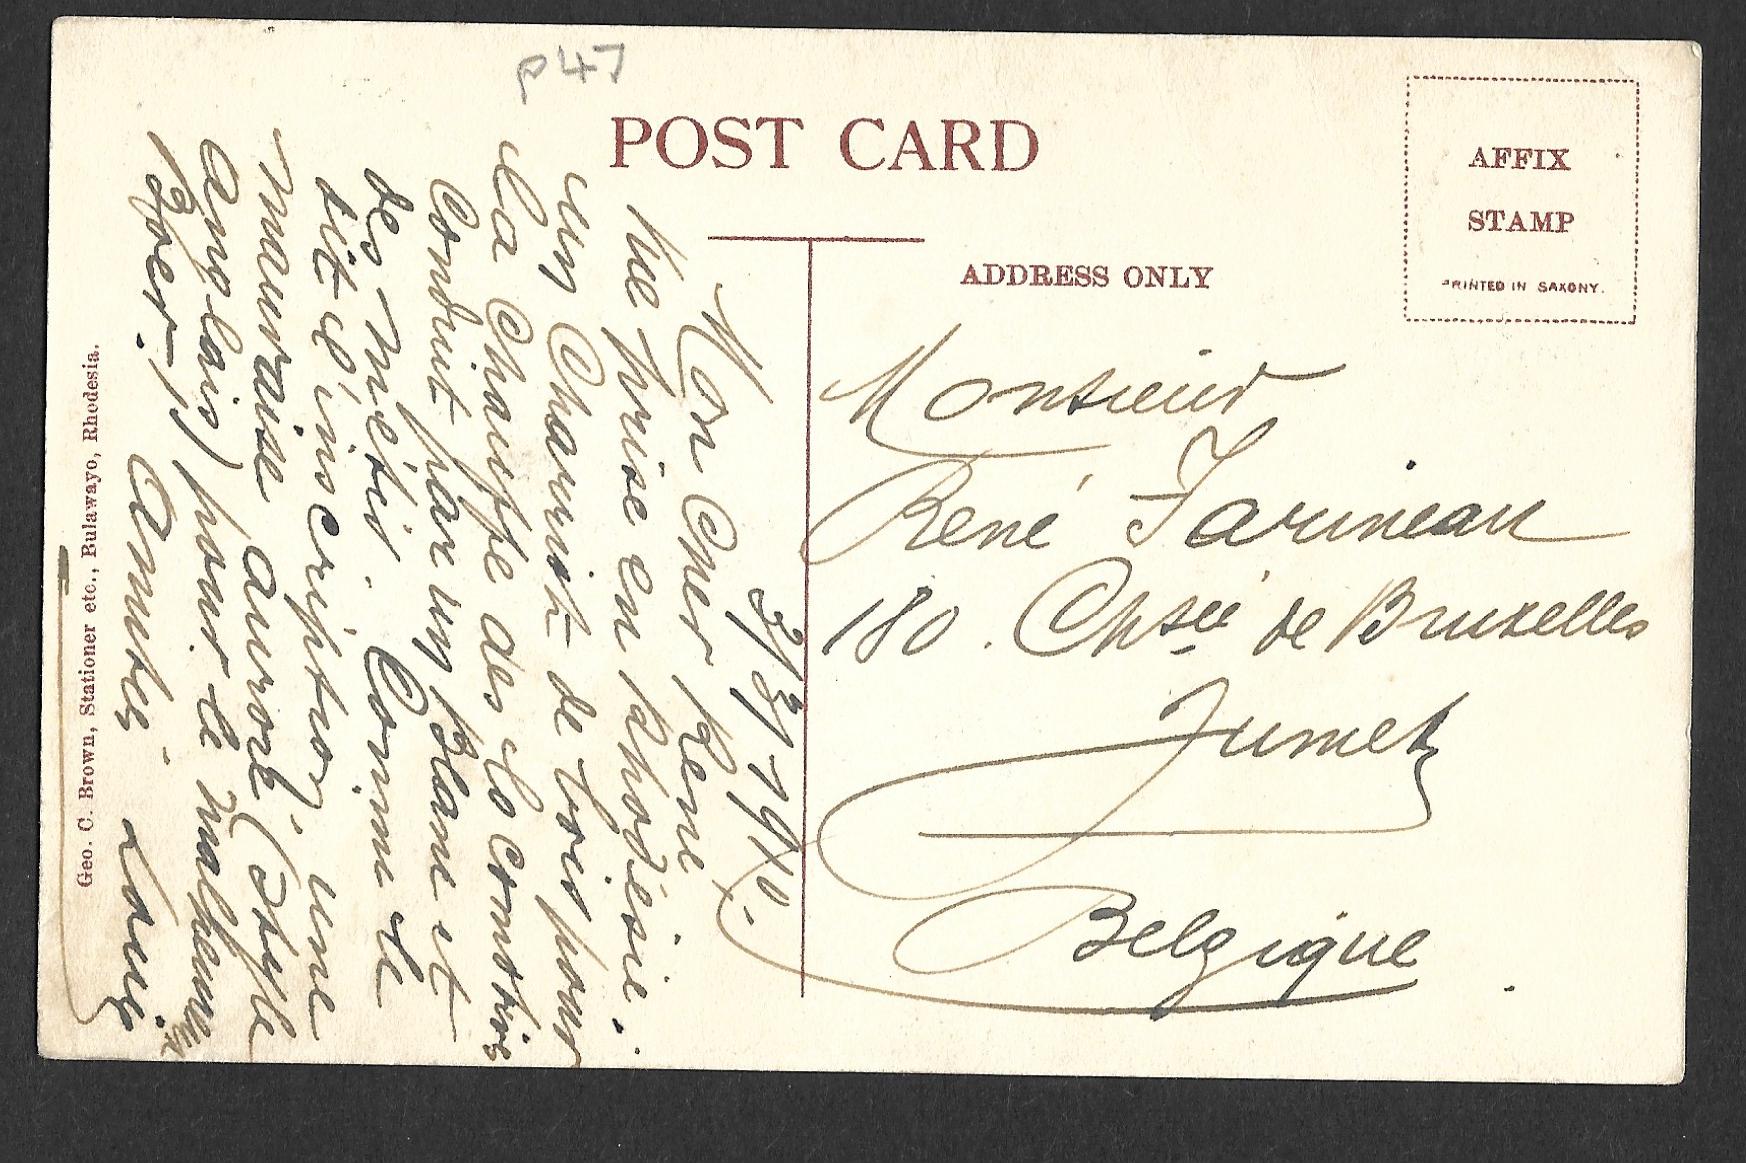 p47
POST CARD
AFFIX
STAMP
PRINTED IN SAXONY.
ADDRESS ONLY
Monsieur
René Farineau
180. Chsée de Bruxelles
Jumet
Belgique
3/3/1910.
Mon Cher René,
Vue prise en Rhodésie.
un Chariot de bois pour
la Chauffe des locomotives
Conduit par un Blanc et
des métis. Comme le
dit l'inscription, une
mauvaise
anglais) pour le malheureux
Boer.) Amitiés. Louis
Geo. C. Brown, Stationer etc., Bulawayo, Rhodesia.